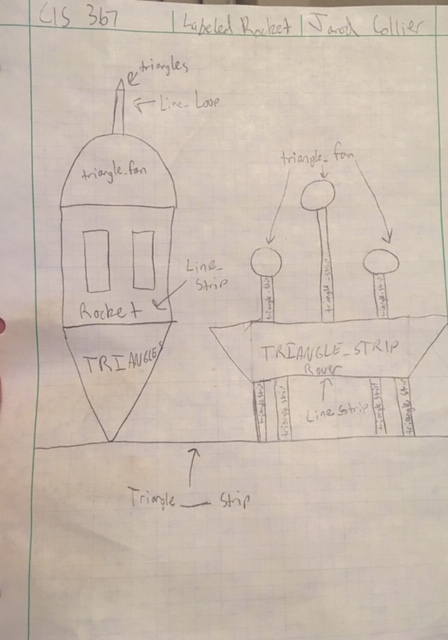 CIS 367 | Labeled Rocket | Jarod Collier
triangles
Line_Loop
triangle_fan
triangle_fan
Line_
Strip
Rocket
TRIANGLES
TRIANGLE_STRIP
Rover
Line Strip
triangle strip
triangle strip
triangle strip
triangle strip
triangle strip
triangle strip
triangle strip
Triangle __ Strip